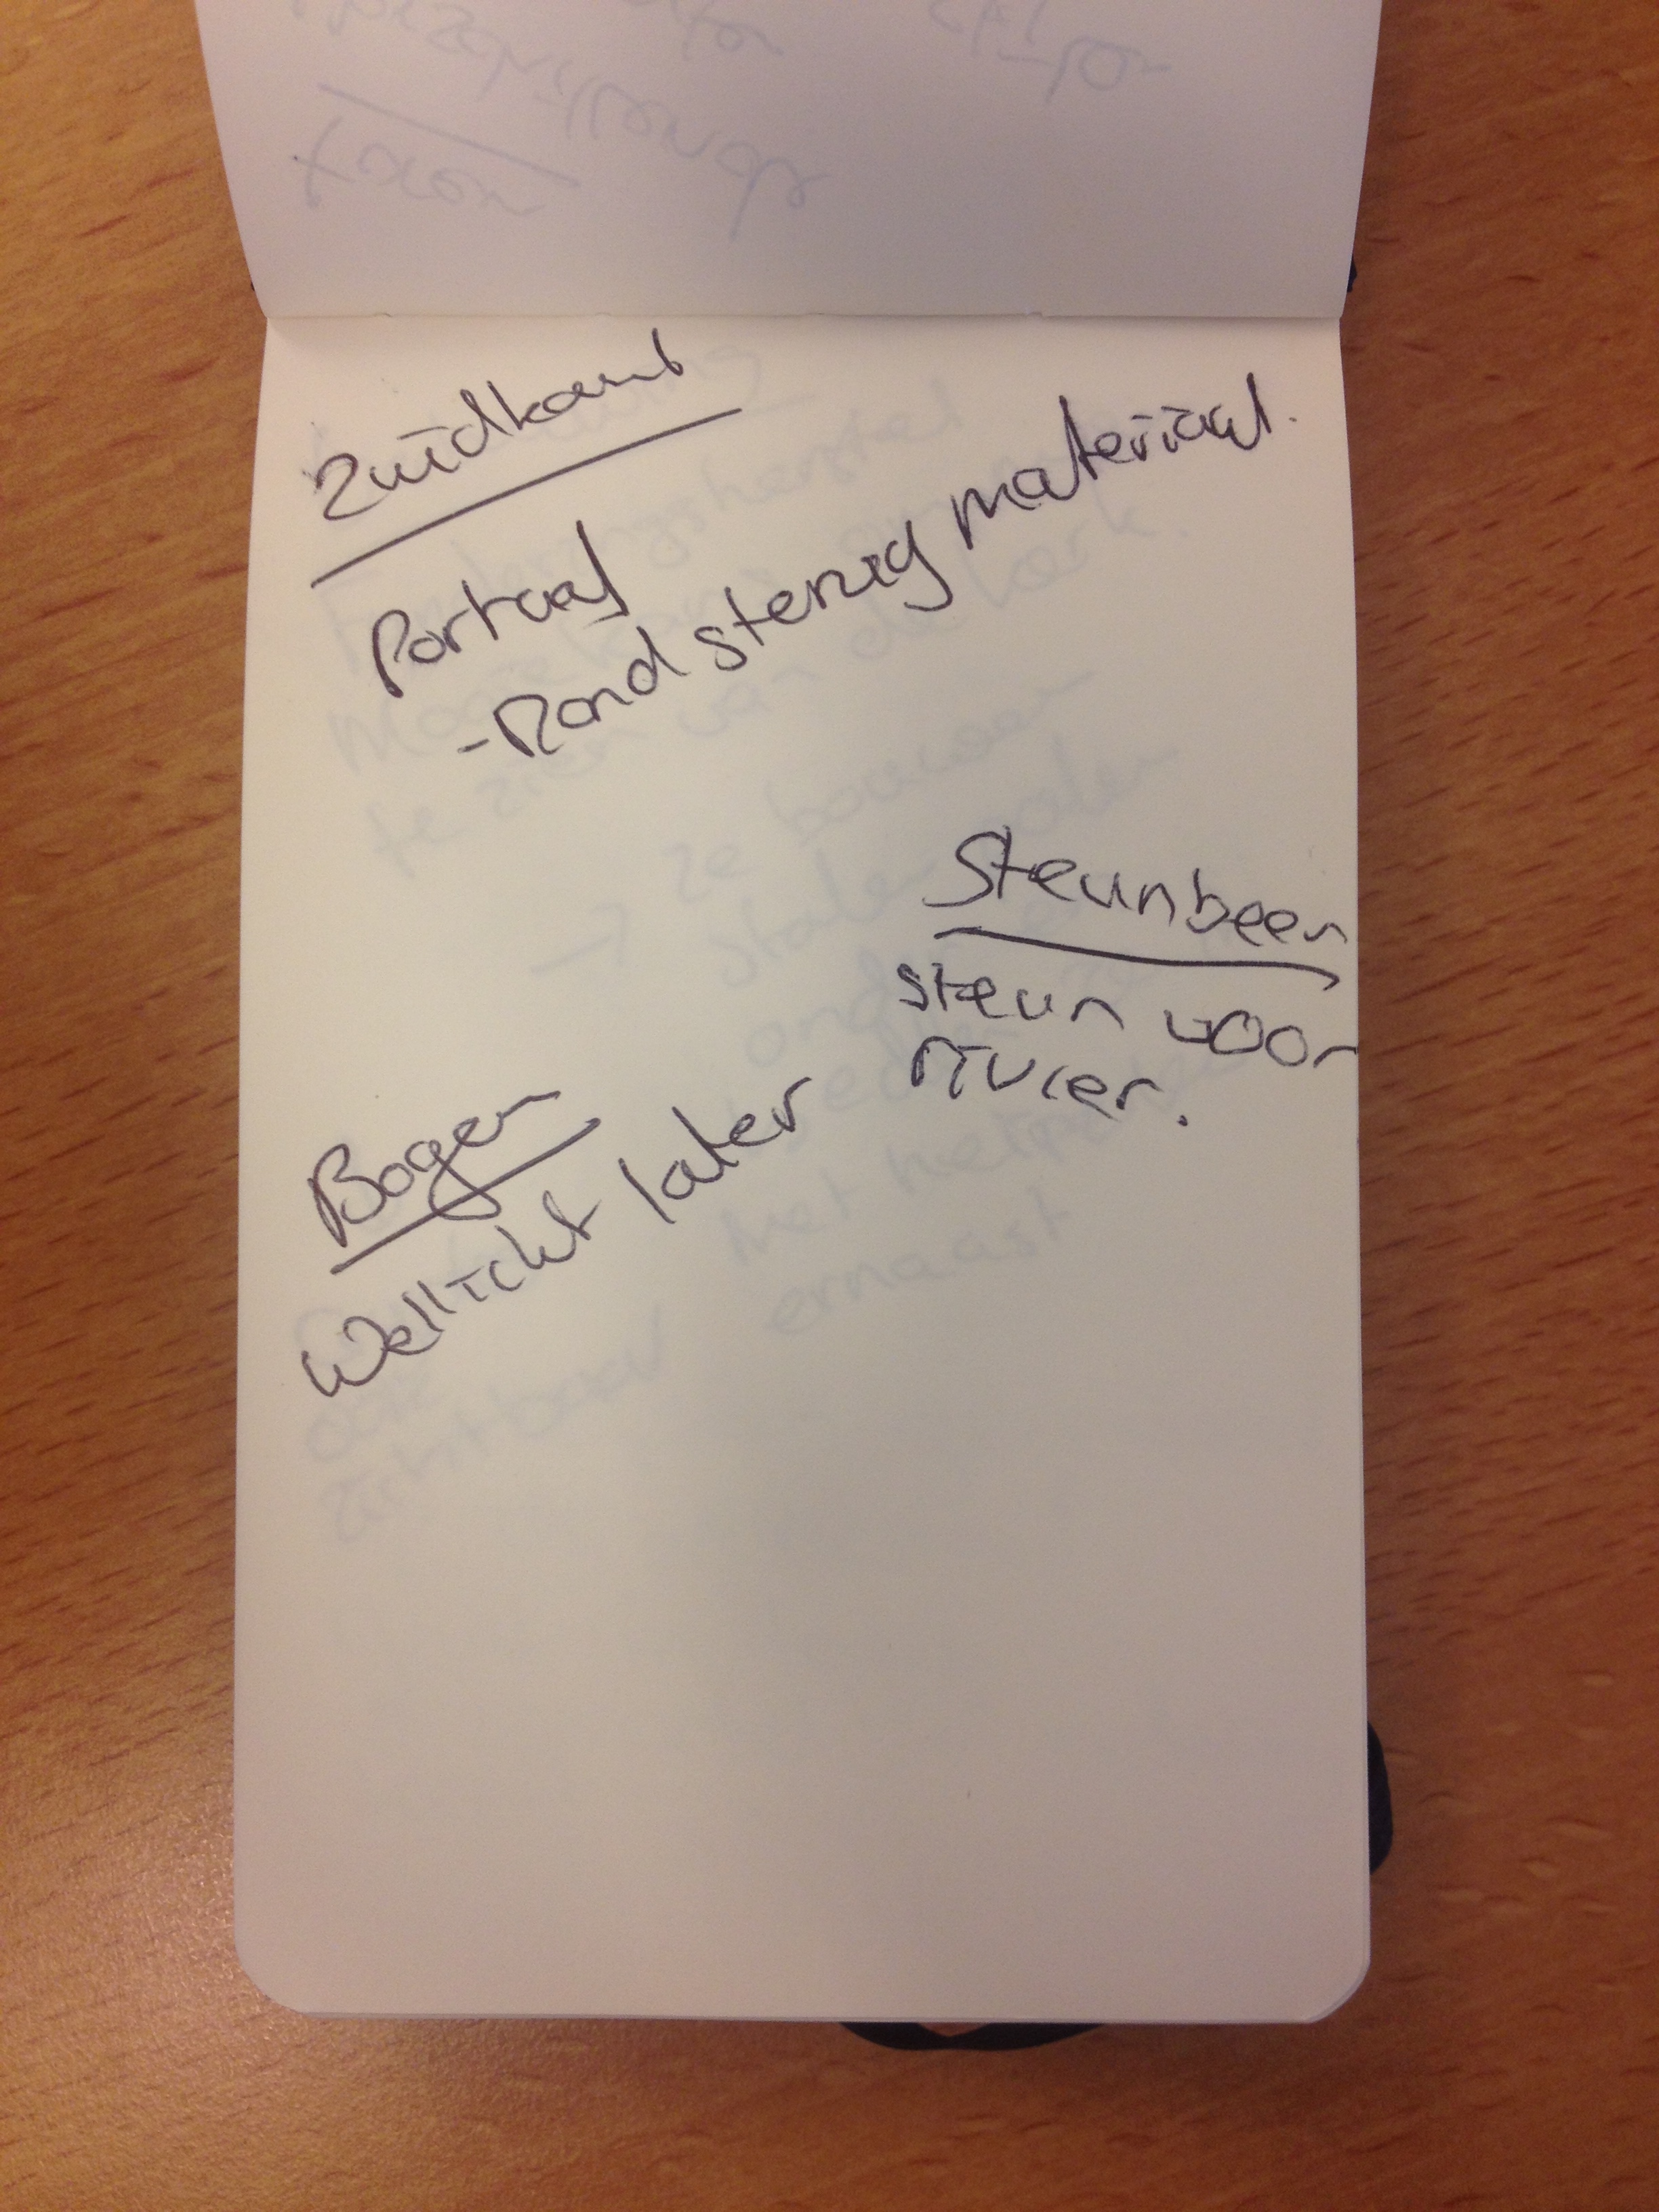 Zuidkant
Portaal
- Rond stenig materiaal.
Steunbeer
steun voor
rivier.
Bogen
Wellicht later